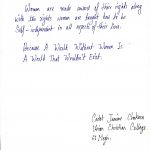 Women are made aware of their rights along
with the rights women are taught how to be
Self-independent in all aspects of their lives.
Because A World Without Women Is
A World That Wouldn't Exist.
Cadet
Union Christian College